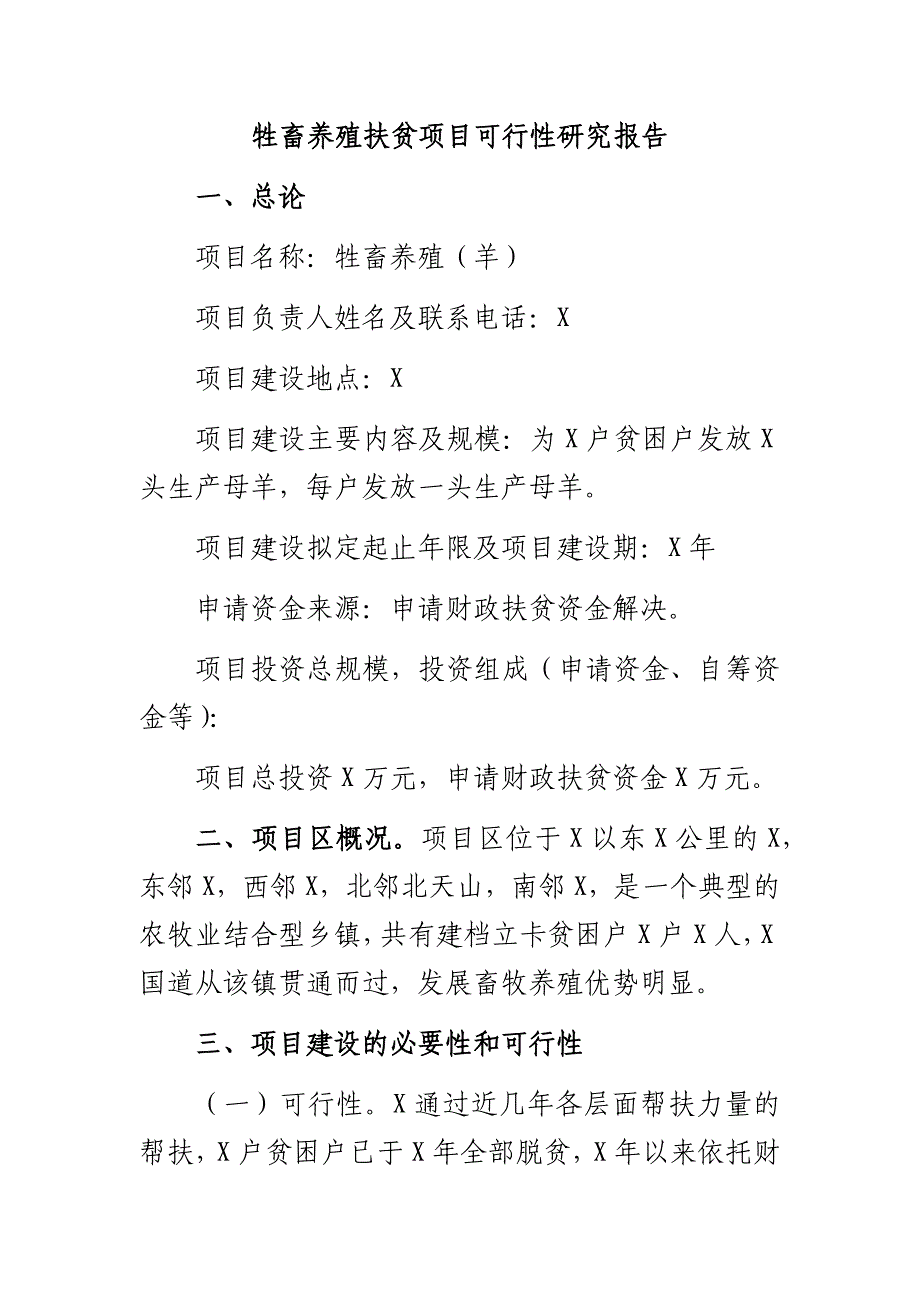 牲畜养殖扶贫项目可行性研究报告
一、总论
项目名称：牲畜养殖（羊）
项目负责人姓名及联系电话：X
项目建设地点：X
项目建设主要内容及规模：为 X 户贫困户发放 X
头生产母羊，每户发放一头生产母羊。
项目建设拟定起止年限及项目建设期：X 年
申请资金来源：申请财政扶贫资金解决。
项目投资总规模，投资组成（申请资金、自筹资
金等）：
项目总投资 X 万元，申请财政扶贫资金 X 万元。
二、项目区概况。项目区位于 X 以东 X 公里的 X，
东邻 X，西邻 X，北邻北天山，南邻 X，是一个典型的
农牧业结合型乡镇，共有建档立卡贫困户 X 户 X 人，X
国道从该镇贯通而过，发展畜牧养殖优势明显。
三、项目建设的必要性和可行性
（一）可行性。X 通过近几年各层面帮扶力量的
帮扶，X 户贫困户已于 X 年全部脱贫，X 年以来依托财